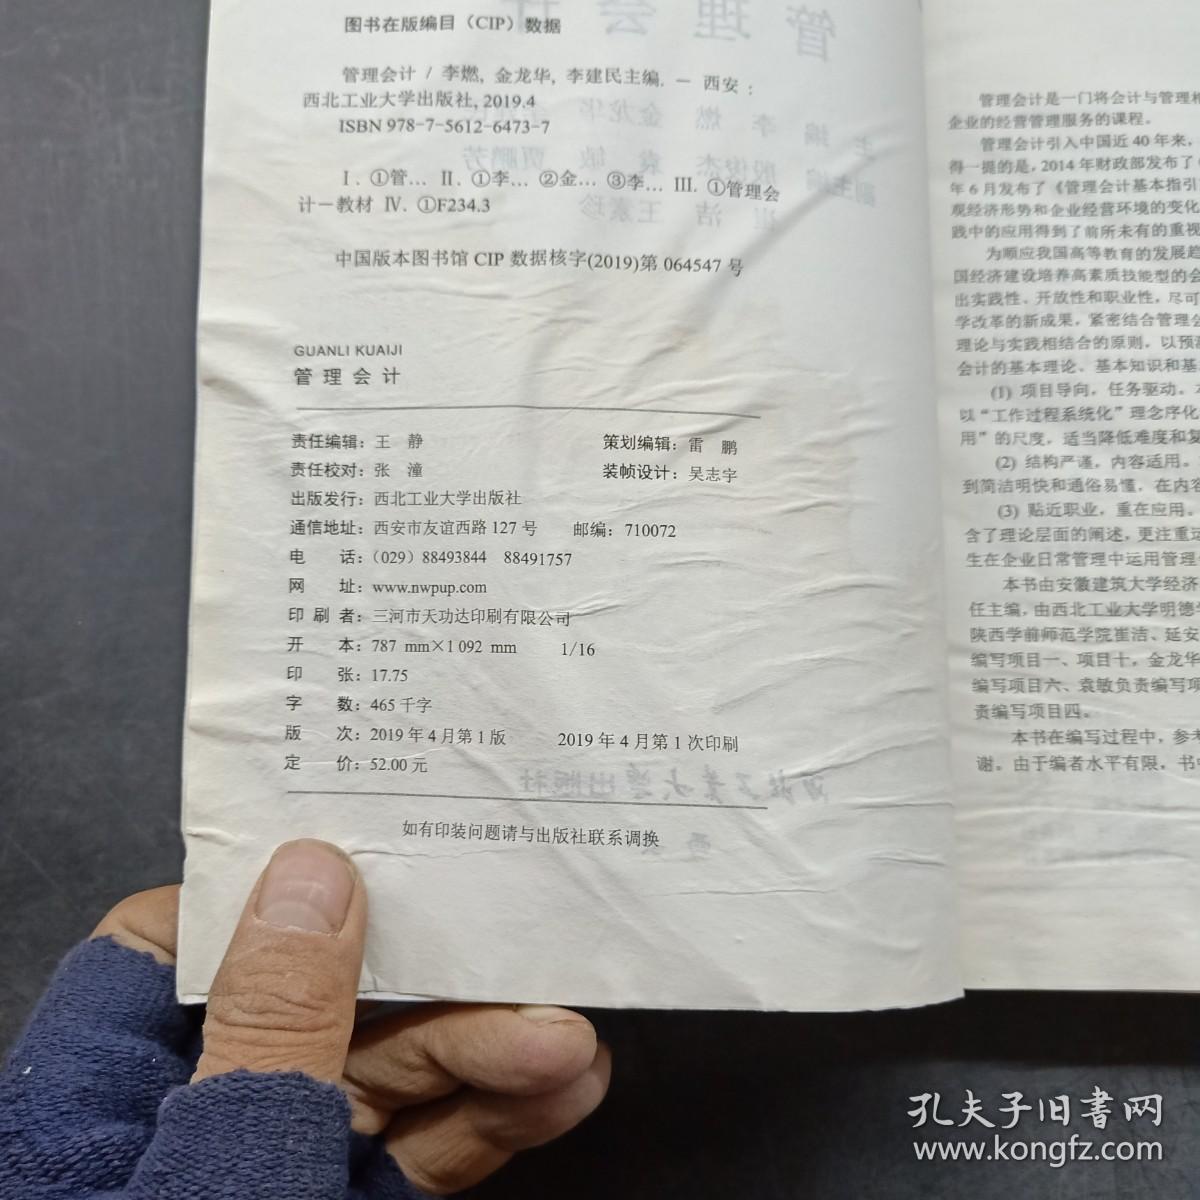 图书在版编目（CIP）数据
管理会计 / 李燃, 金龙华, 李建民主编. — 西安：
西北工业大学出版社, 2019.4
ISBN 978-7-5612-6473-7
Ⅰ. ①管… Ⅱ. ①李… ②金… ③李… Ⅲ. ①管理会
计－教材 Ⅳ. ①F234.3
中国版本图书馆 CIP 数据核字(2019)第 064547 号
GUANLI KUAIJI
管 理 会 计
责任编辑：王 静 策划编辑：雷 鹏
责任校对：张 潼 装帧设计：吴志宇
出版发行：西北工业大学出版社
通信地址：西安市友谊西路 127 号 邮编：710072
电 话：（029）88493844 88491757
网 址：www.nwpup.com
印 刷 者：三河市天功达印刷有限公司
开 本：787 mm×1 092 mm 1/16
印 张：17.75
字 数：465 千字
版 次：2019 年 4 月第 1 版 2019 年 4 月第 1 次印刷
定 价：52.00 元
如有印装问题请与出版社联系调换
管理会计是一门将会计与管理相
企业的经营管理服务的课程。
管理会计引入中国近 40 年来，
得一提的是，2014 年财政部发布了
年 6 月发布了《管理会计基本指引
观经济形势和企业经营环境的变化
践中的应用得到了前所未有的重视
为顺应我国高等教育的发展趋
国经济建设培养高素质技能型的会
出实践性、开放性和职业性，尽可
学改革的新成果，紧密结合管理会
理论与实践相结合的原则，以预测
会计的基本理论、基本知识和基
(1) 项目导向，任务驱动。本
以“工作过程系统化”理念序化
用”的尺度，适当降低难度和复
(2) 结构严谨，内容适用。
到简洁明快和通俗易懂，在内容
(3) 贴近职业，重在应用。
含了理论层面的阐述，更注重运
生在企业日常管理中运用管理
本书由安徽建筑大学经济
任主编，由西北工业大学明德学
陕西学前师范学院崔洁、延安
编写项目一、项目十，金龙华
编写项目六、袁敏负责编写项
责编写项目四。
本书在编写过程中，参考
谢。由于编者水平有限，书中
孔夫子旧书网
www.kongfz.com